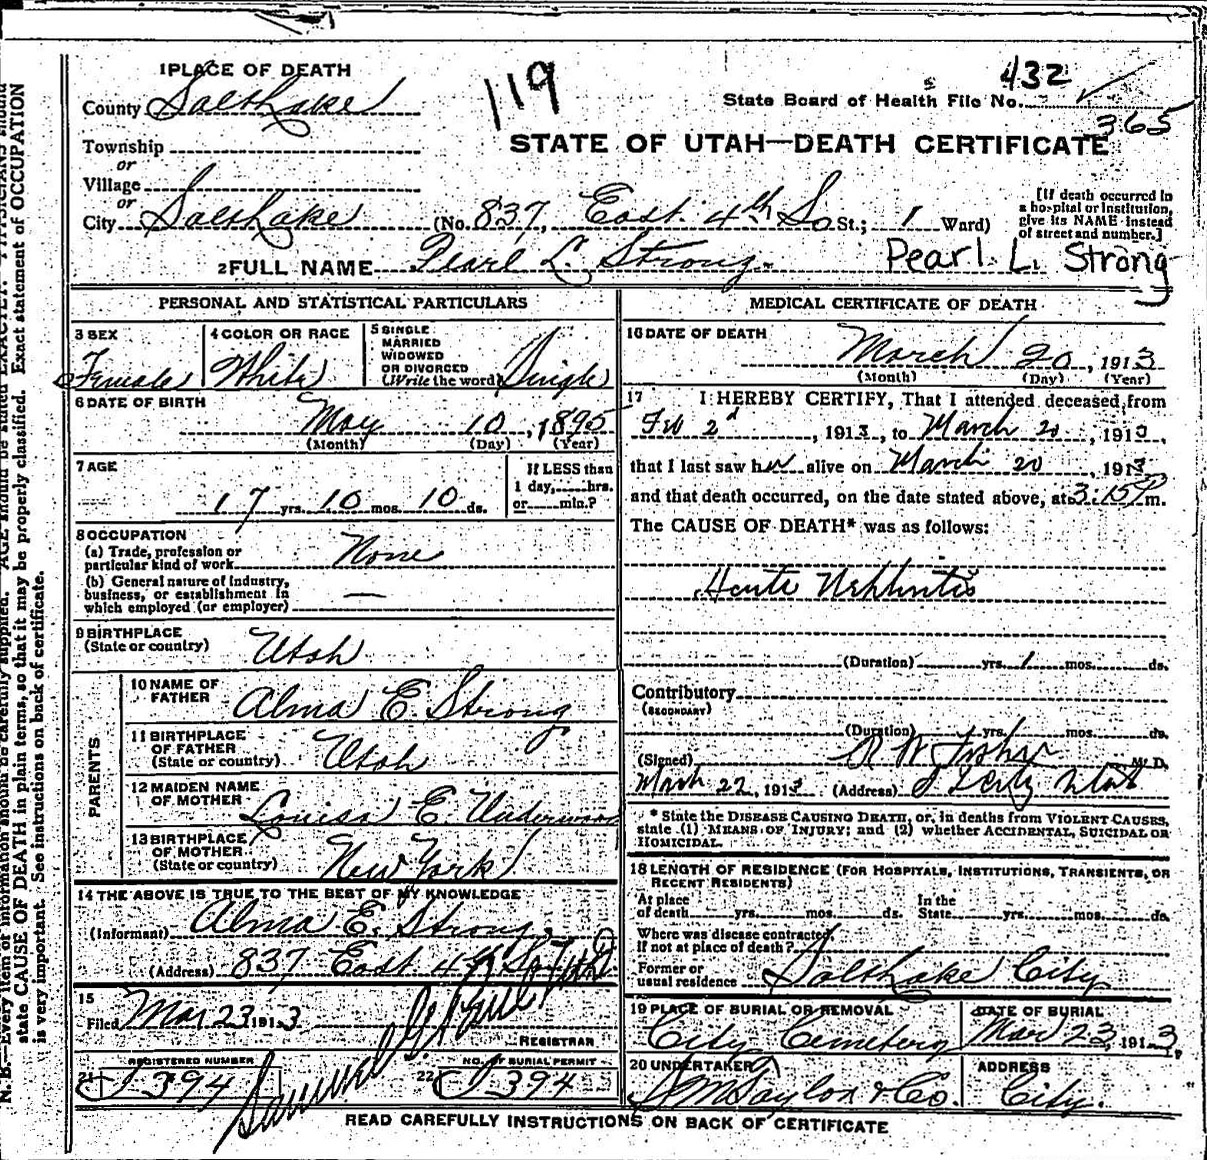 1 PLACE OF DEATH
119
432
County Salt Lake
State Board of Health File No.
365
STATE OF UTAH—DEATH CERTIFICATE
Township
or
Village
or
City Salt Lake (No. 837, East 4th So St.; 1 Ward)
[If death occurred in a hospital or institution, give its NAME instead of street and number.]
2 FULL NAME Pearl L. Strong.
Pearl L. Strong
PERSONAL AND STATISTICAL PARTICULARS
3 SEX Female
4 COLOR OR RACE White
5 SINGLE MARRIED WIDOWED OR DIVORCED (Write the word) Single
6 DATE OF BIRTH
May 10, 1895
(Month) (Day) (Year)
7 AGE
17 yrs. 10 mos. 10 ds.
If LESS than 1 day, hrs. or min.?
8 OCCUPATION
(a) Trade, profession or particular kind of work None
(b) General nature of industry, business, or establishment in which employed (or employer) —
9 BIRTHPLACE
(State or country) Utah
PARENTS
10 NAME OF FATHER Alma E. Strong
11 BIRTHPLACE OF FATHER (State or country) Utah
12 MAIDEN NAME OF MOTHER Louisa E. Underwood
13 BIRTHPLACE OF MOTHER (State or country) New York
14 THE ABOVE IS TRUE TO THE BEST OF MY KNOWLEDGE
(Informant) Alma E. Strong
(Address) 837 East 4th So
15
Filed Mar 23 1913
REGISTRAR
REGISTERED NUMBER
21 394
NO. OF BURIAL PERMIT
22 394
Samuel G. Paul
MEDICAL CERTIFICATE OF DEATH
16 DATE OF DEATH
March 20, 1913
(Month) (Day) (Year)
17 I HEREBY CERTIFY, That I attended deceased from
Feb 2d, 1913, to March 20, 1913,
that I last saw her alive on March 20, 1913
and that death occurred, on the date stated above, at 3:15 P m.
The CAUSE OF DEATH* was as follows:
Acute Nephritis
(Duration) yrs. 1 mos. ds.
Contributory
(SECONDARY)
(Duration) yrs. mos. ds.
(Signed) R W Fisher M. D.
March 22, 1913 (Address) S L City Utah
* State the DISEASE CAUSING DEATH, or, in deaths from VIOLENT CAUSES,
state (1) MEANS OF INJURY; and (2) whether ACCIDENTAL, SUICIDAL OR
HOMICIDAL.
18 LENGTH OF RESIDENCE (FOR HOSPITALS, INSTITUTIONS, TRANSIENTS, OR
RECENT RESIDENTS)
At place of death yrs. mos. ds. In the State yrs. mos. ds.
Where was disease contracted,
if not at place of death?
Former or usual residence Salt Lake City
19 PLACE OF BURIAL OR REMOVAL City Cemetery
DATE OF BURIAL Mar 23, 1913
20 UNDERTAKER S M Taylor & Co.
ADDRESS City.
READ CAREFULLY INSTRUCTIONS ON BACK OF CERTIFICATE
N. B.—Every item of information should be carefully supplied. AGE should be stated EXACTLY. PHYSICIANS should
state CAUSE OF DEATH in plain terms, so that it may be properly classified. Exact statement of OCCUPATION
is very important. See instructions on back of certificate.